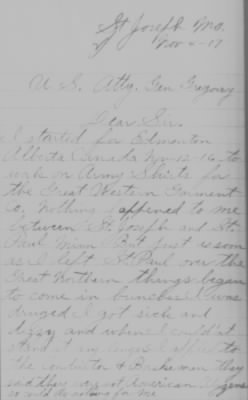 St Joseph Mo.
Nov 6-17
U S. Atty. Gen Gregory
Dear Sir.
I started for Edmonton
Alberta Canada Nov-12-16 to
work on Army Shirts for
the Great Western Garment
Co. Nothing appened to me
between St. Joseph and St.
Paul Minn. But just as soon
as I left St Paul over the
Great Northern things began
to come in bunches I was
druged I got sick and
dizzy and when I could'nt
stand it any longer I
to the conductor & Brakeman they
said they were not American
so could do nothing for me